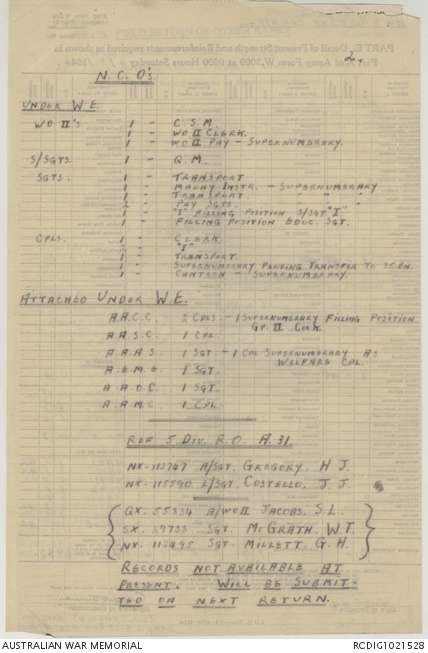 2.
N.C.O's.
UNDER W.E.
WO II's 1 - C.S.M.
1 - WO II CLERK.
1 - WO II PAY - SUPERNUMERARY.
S/SGTS. 1 - Q.M.
SGTS. 1 - TRANSPORT
1 - MACHY INSTR. - SUPERNUMERARY
1 - TRANSPORT " "
PAY SGTS. " "
1 - "I" FILLING POSITION S/SGT "I"
1 - FILLING POSITION EDUC. SGT.
CPLS. 1 - CLERK.
1 - "I"
1 - TRANSPORT.
1 - SUPERNUMERARY PENDING TRANSFER TO
1 - CANTEEN - SUPERNUMERARY.
ATTACHED UNDER W.E.
A.A.C.C. 2 CPLS - 1 SUPERNUMERARY FILLING POSITION
GP. II COOK.
A.A.S.C. 1 CPL
A.A.A.S. 1 SGT - 1 CPL SUPERNUMERARY AS
WELFARE CPL.
A.E.M.E. 1 SGT.
A.A.O.C. 1 SGT.
A.A.M.C. 1 CPL.
REF 5 DIV. R.O. A.31.
NX-113747 A/SGT. GREGORY. H J.
NX-115590 L/SGT. COSTELLO, J.J.
QX. 55334 A/WO II JACOBS, S.L.
SX. 39733 SGT. McGRATH, W.T.
NX. 112495 SGT. MILLETT G.H.
RECORDS NOT AVAILABLE AT
PRESENT. WILL BE SUBMIT-
TED ON NEXT RETURN.
AUSTRALIAN WAR MEMORIAL
RCDIG1021528